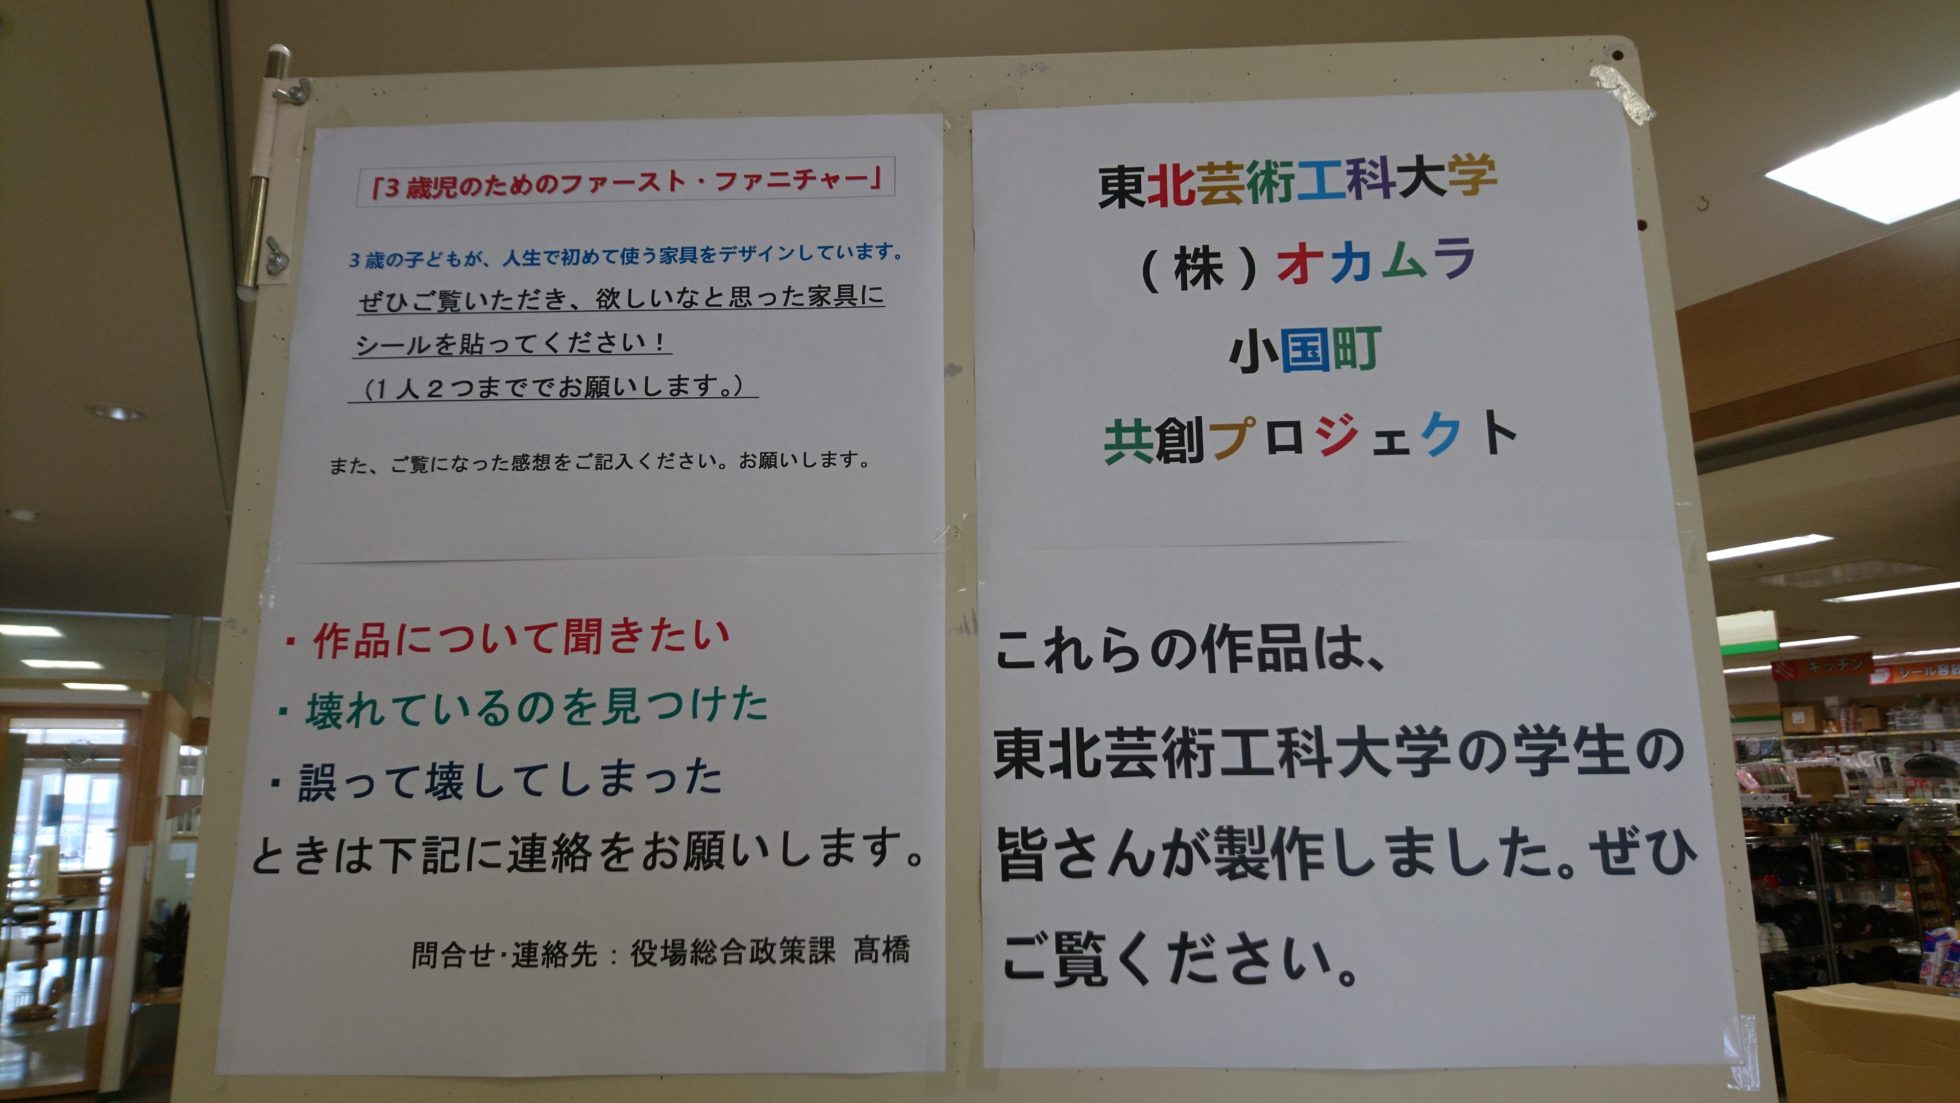 「3歳児のためのファースト・ファニチャー」
3歳の子どもが、人生で初めて使う家具をデザインしています。
ぜひご覧いただき、欲しいなと思った家具に
シールを貼ってください！
（1人2つまででお願いします。）
また、ご覧になった感想をご記入ください。お願いします。
・作品について聞きたい
・壊れているのを見つけた
・誤って壊してしまった
ときは下記に連絡をお願いします。
問合せ・連絡先：役場総合政策課 髙橋
東北芸術工科大学
（株）オカムラ
小国町
共創プロジェクト
これらの作品は、
東北芸術工科大学の学生の
皆さんが製作しました。ぜひ
ご覧ください。
キッチン
シール容器